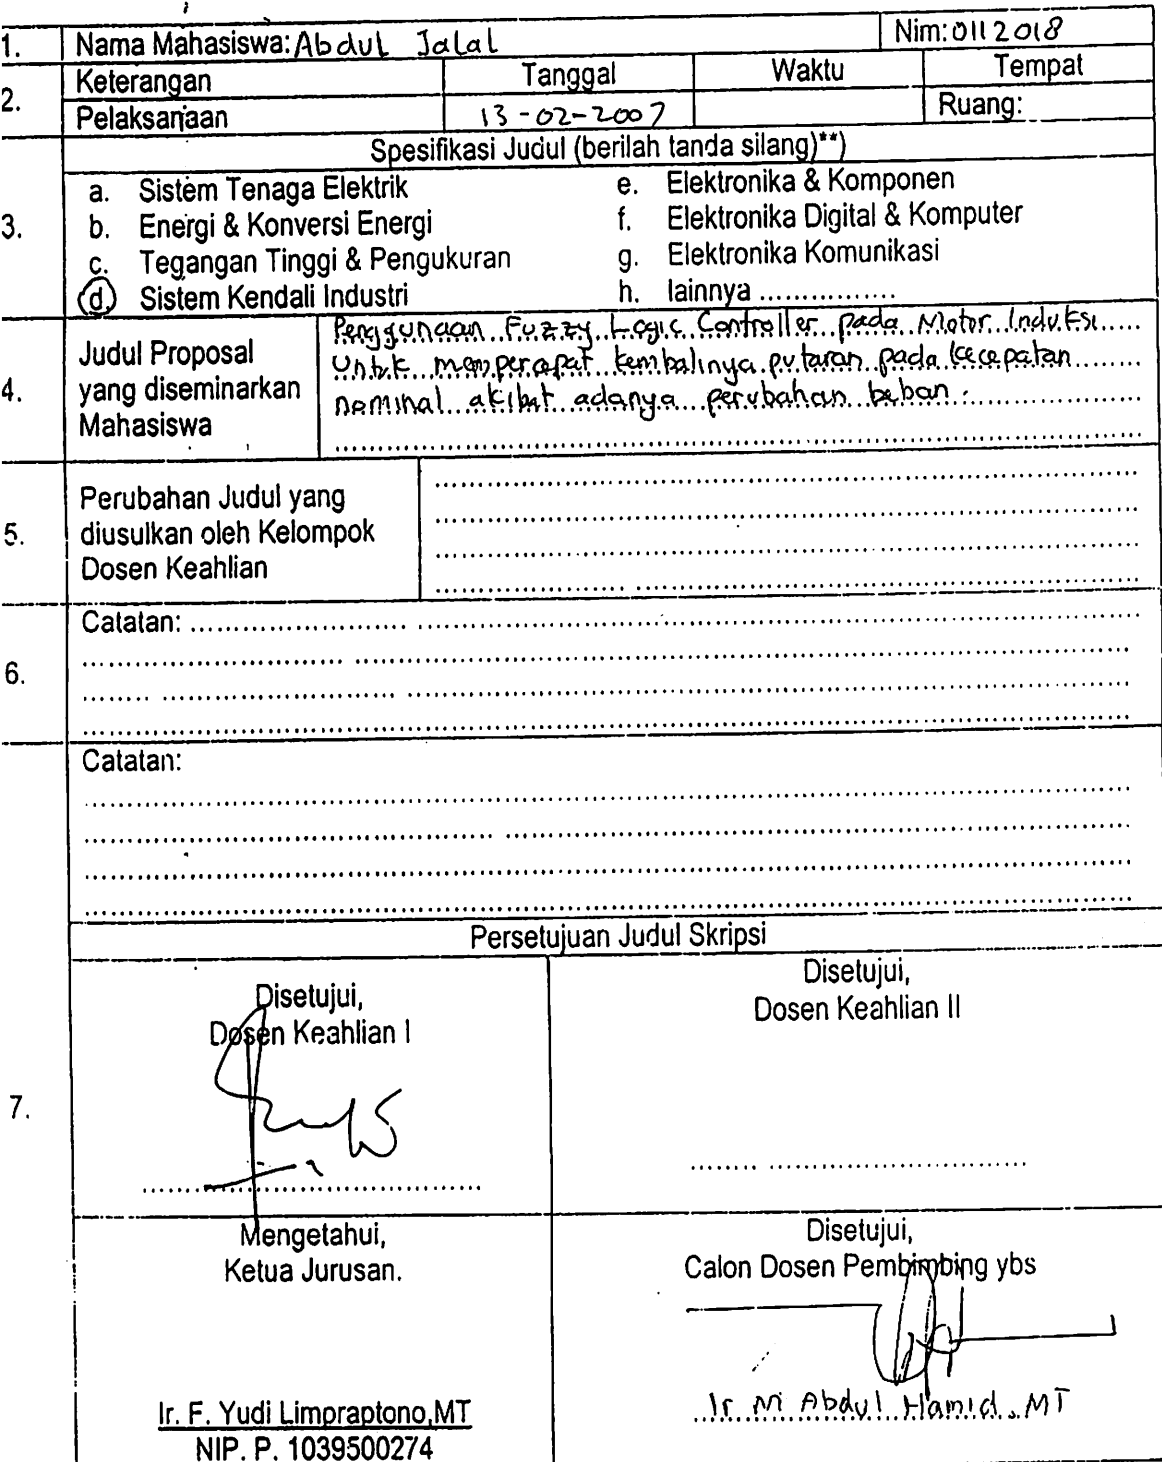 1. Nama Mahasiswa: Abdul Jalal Nim: 0112018
2. Keterangan Tanggal Waktu Tempat
Pelaksanaan 13-02-2007 Ruang:
Spesifikasi Judul (berilah tanda silang)**)
3.
a. Sistem Tenaga Elektrik e. Elektronika & Komponen
b. Energi & Konversi Energi f. Elektronika Digital & Komputer
c. Tegangan Tinggi & Pengukuran g. Elektronika Komunikasi
d. Sistem Kendali Industri h. lainnya ................
4. Judul Proposal yang diseminarkan Mahasiswa
Penggunaan Fuzzy Logic Controller pada Motor Induksi
Untuk mempercepat kembalinya putaran pada kecepatan
nominal akibat adanya perubahan beban.
5. Perubahan Judul yang
diusulkan oleh Kelompok
Dosen Keahlian
6. Catatan:
Catatan:
Persetujuan Judul Skripsi
7.
Disetujui,
Dosen Keahlian I
Disetujui,
Dosen Keahlian II
Mengetahui,
Ketua Jurusan.
Ir. F. Yudi Limpraptono,MT
NIP. P. 1039500274
Disetujui,
Calon Dosen Pembimbing ybs
Ir M Abdul Hamid, MT